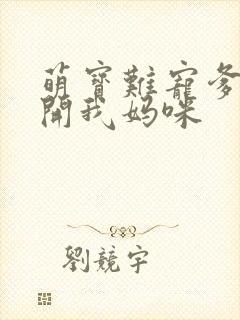 萌寶難寵爹
開我媽咪
劉競宇